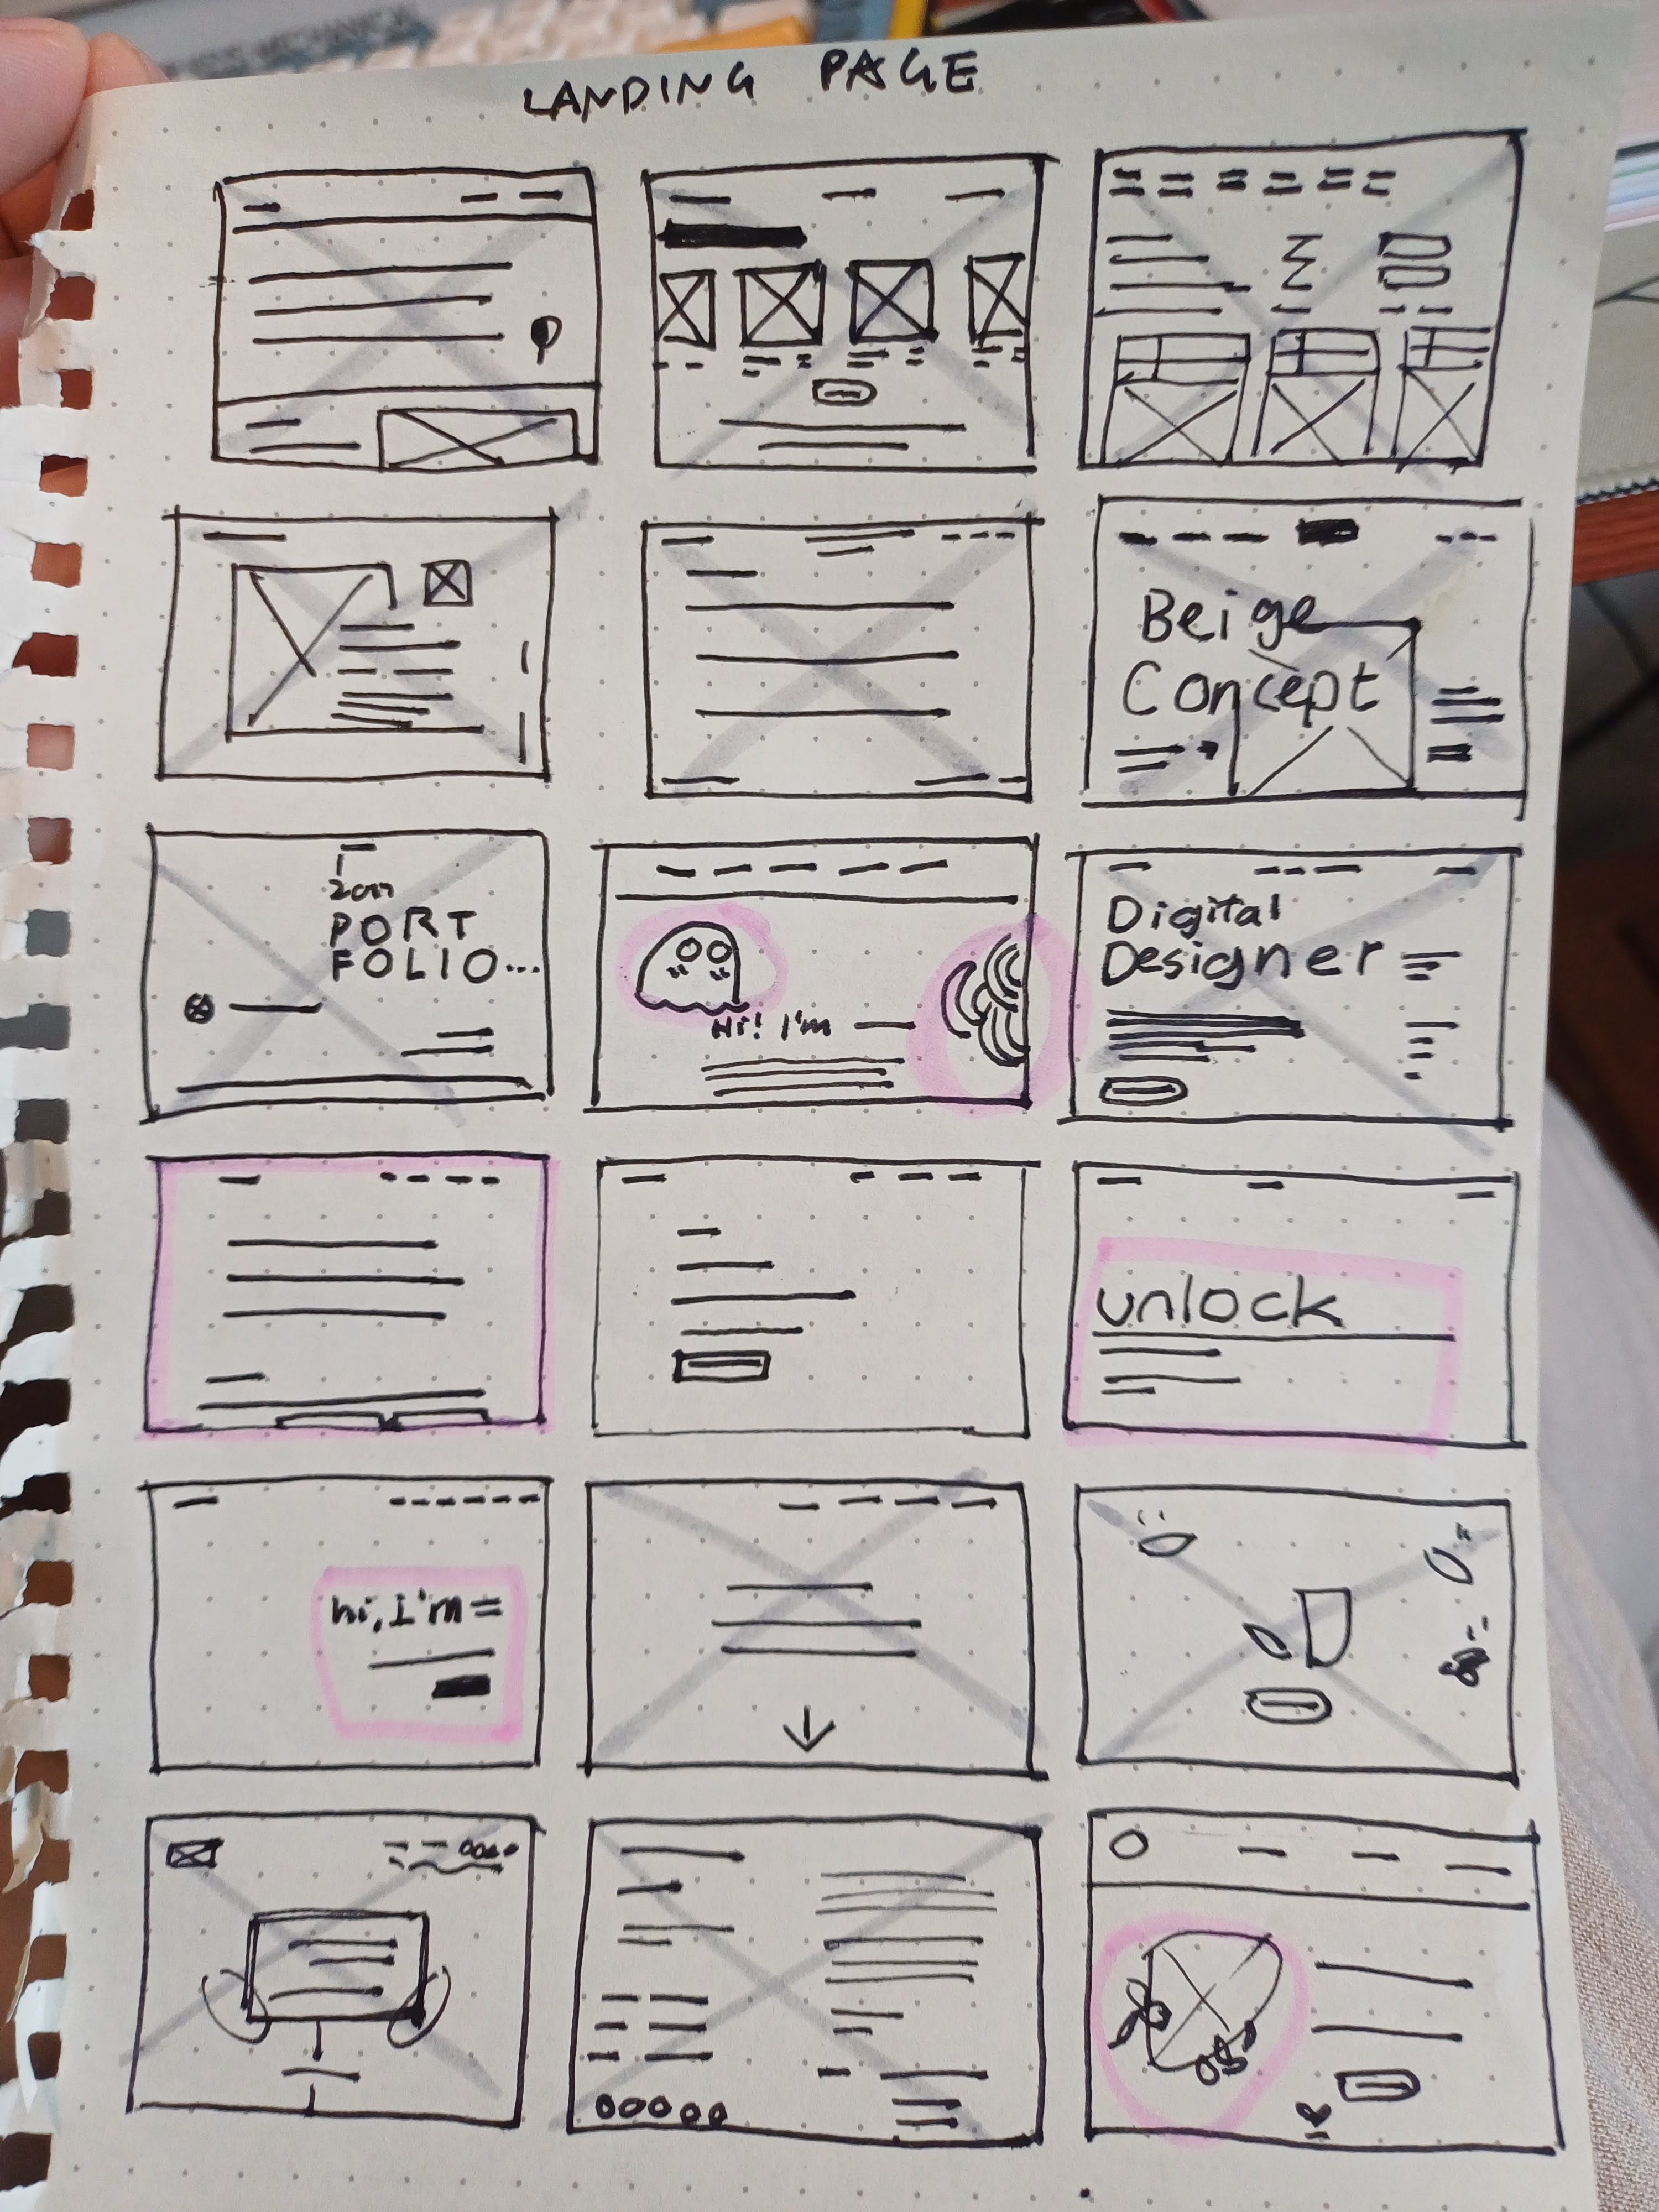 LANDING PAGE
Beige
Concept
PORT
FOLIO...
Hi! I'm
Digital
Designer
unlock
hi, I'm